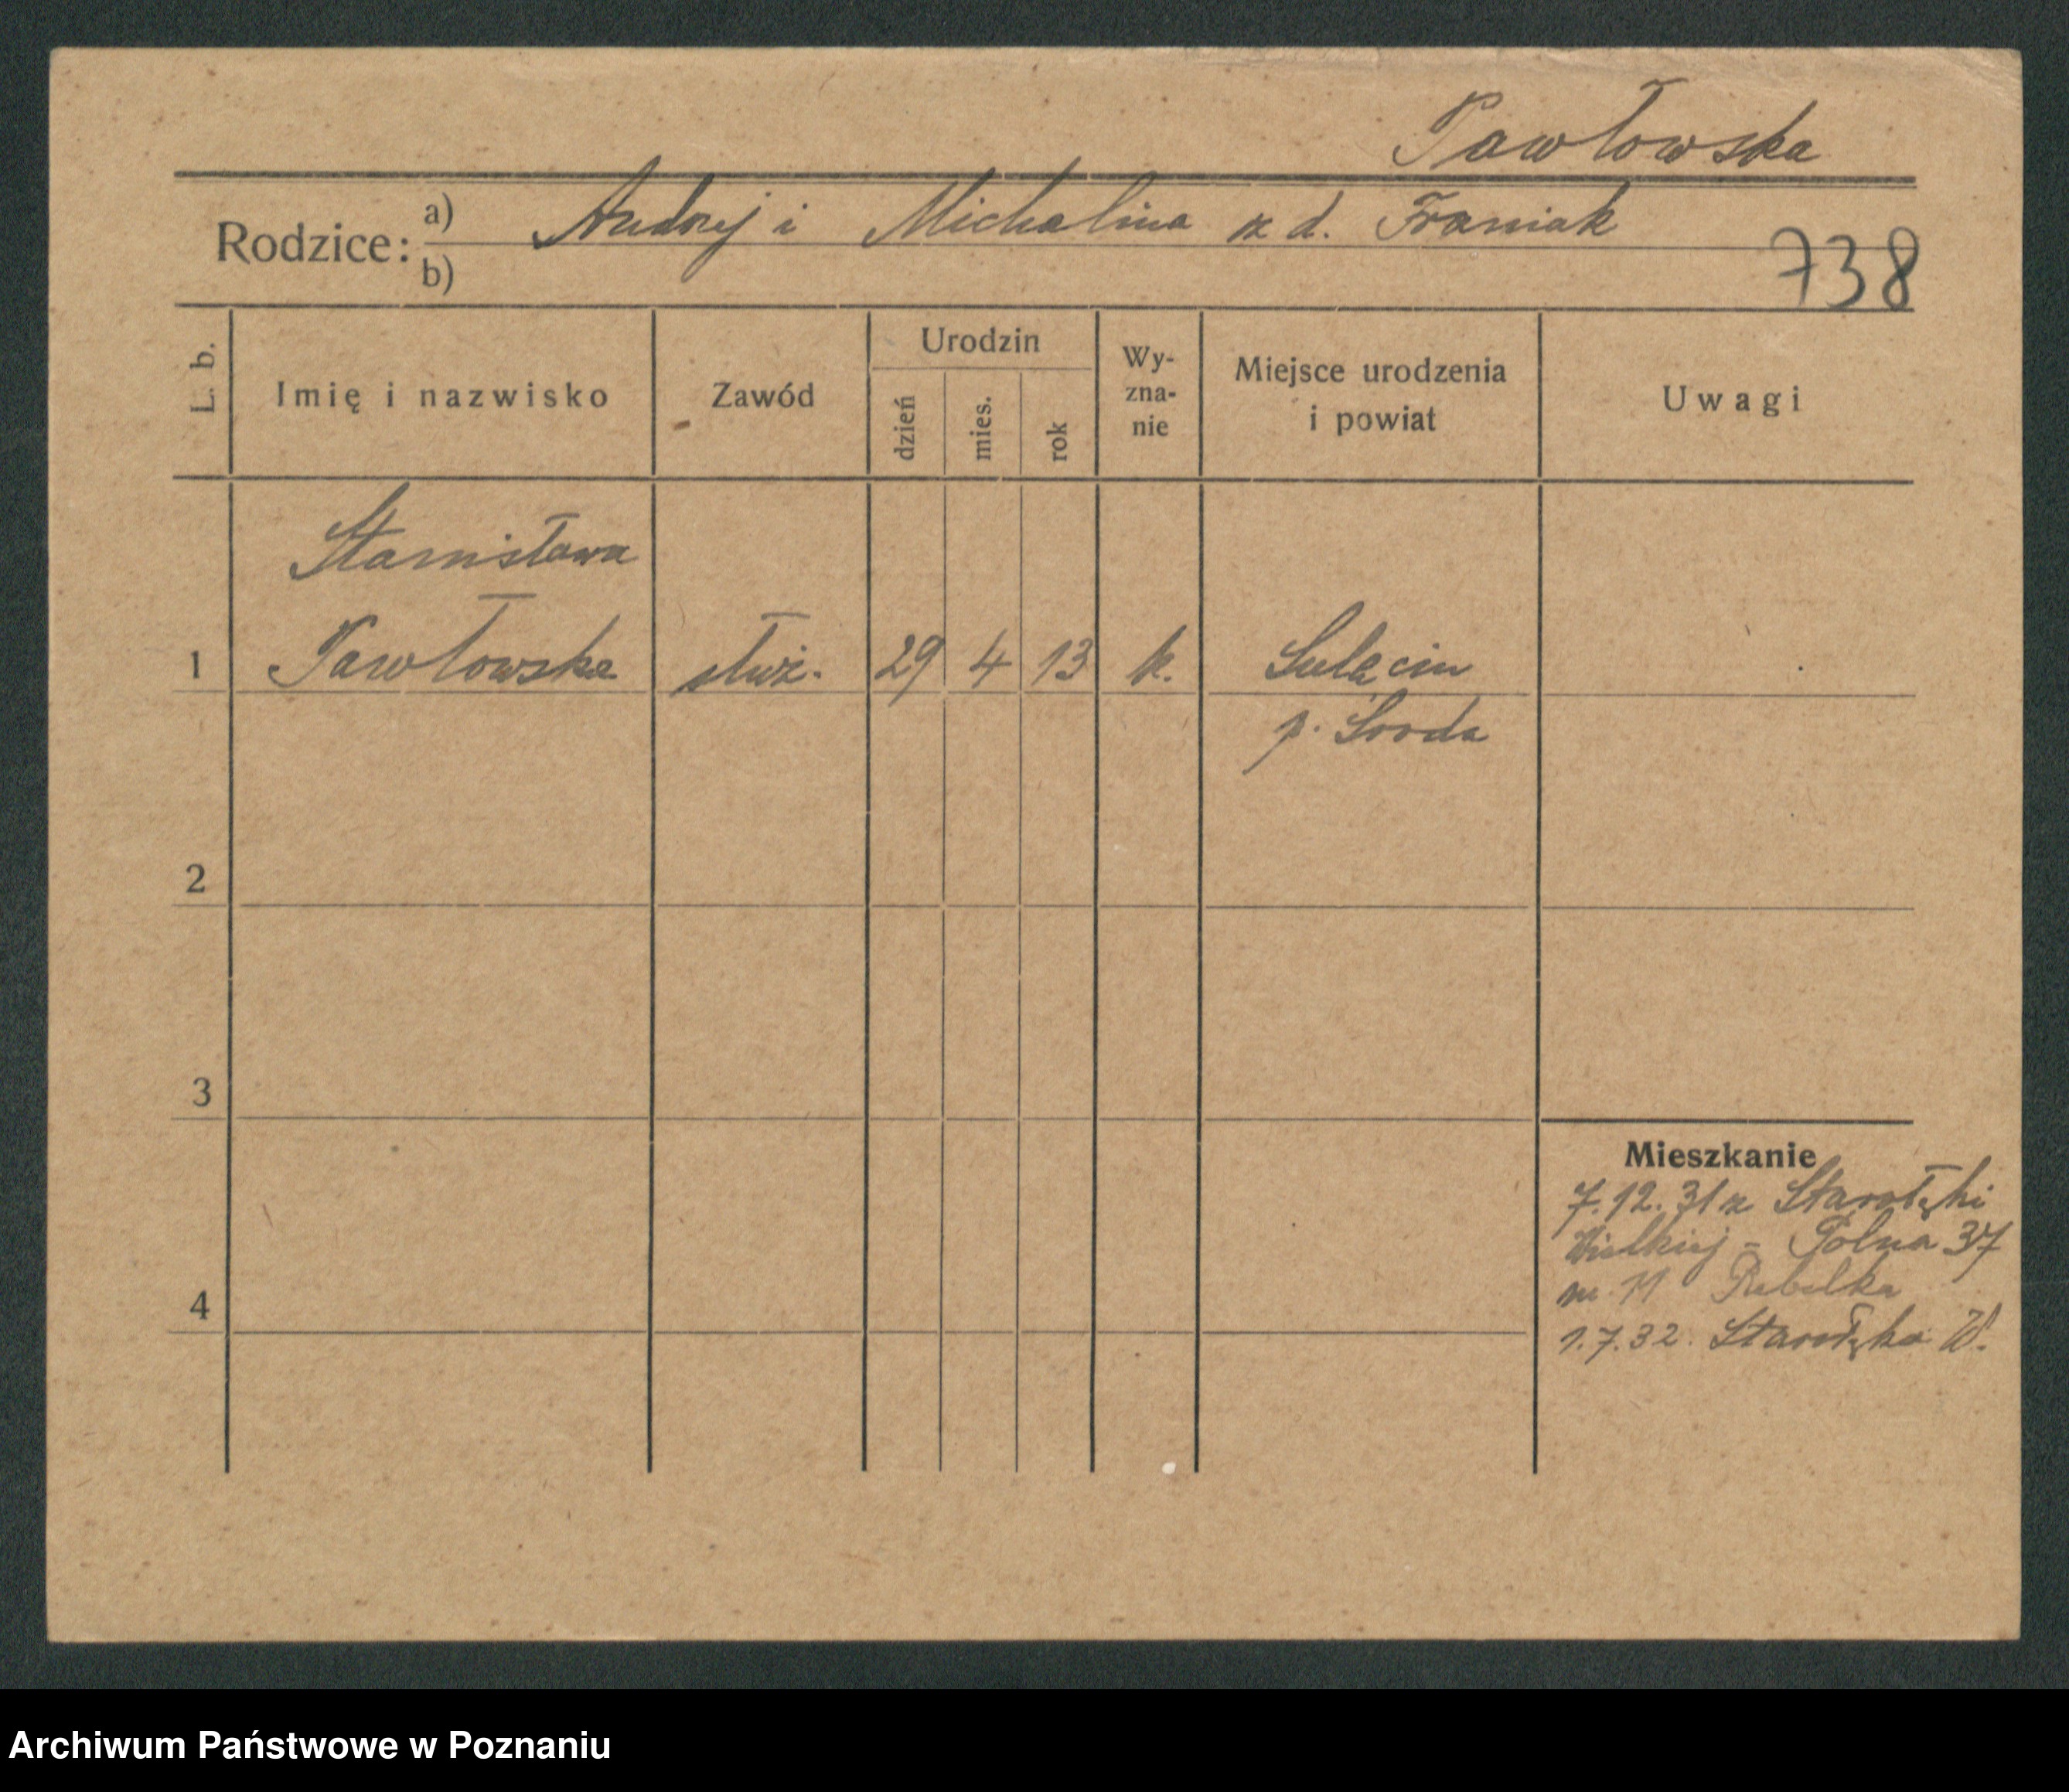 Pawłowska
Rodzice: a) Andrzej i Michalina z d. Franiak
b)
738
L. b.
Imię i nazwisko
Zawód
Urodzin
dzień
mies.
rok
Wy-
zna-
nie
Miejsce urodzenia
i powiat
Uwagi
Stanisława
1 Pawłowska służ. 29 4 13 k. Sulęcin
p. Środa
2
3
4
Mieszkanie
7.12.31 z Starołęki
Wielkiej - Polna 37
m. 11
1.7.32. Starołęka W.
Archiwum Państwowe w Poznaniu